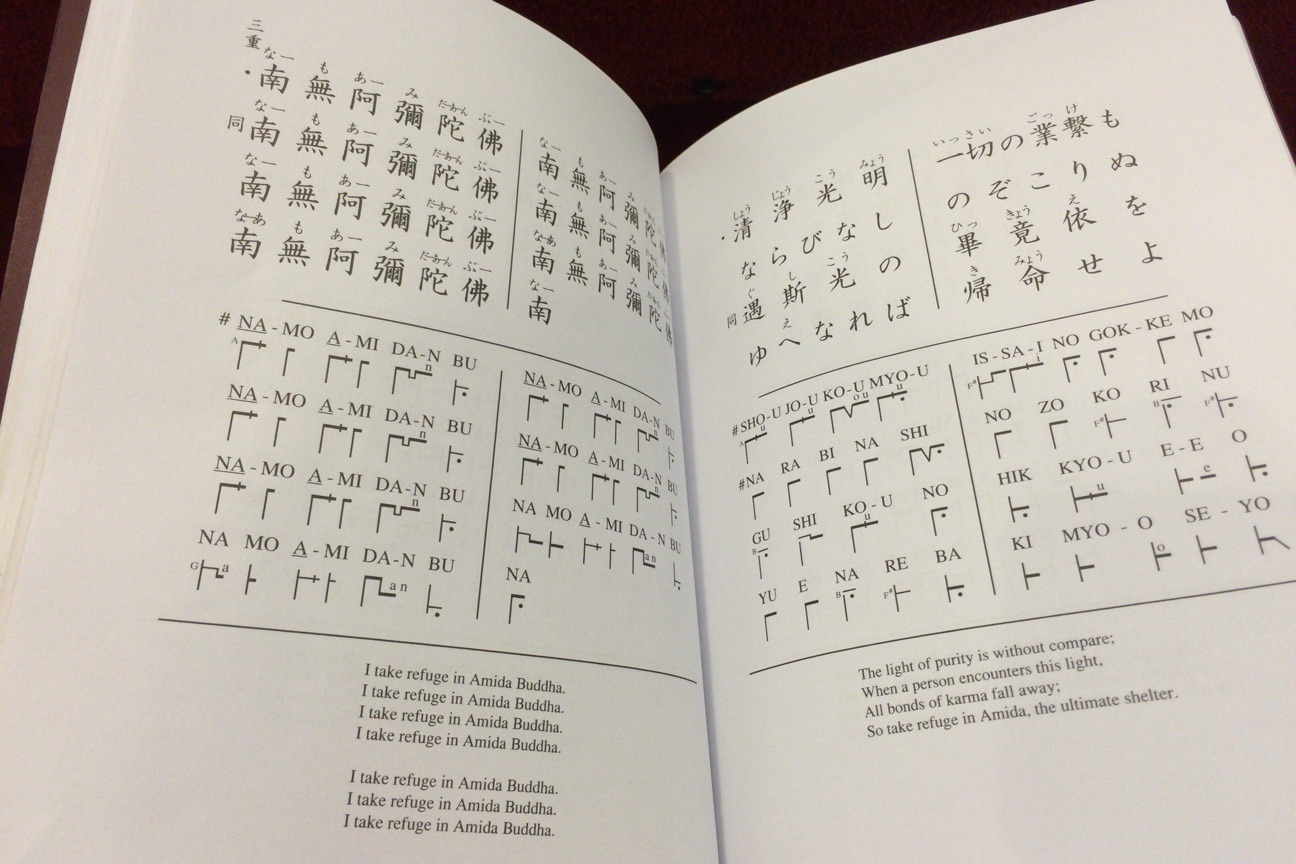 三重
南無阿彌陀佛
なーもあーみだあんぶー
同
南無阿彌陀佛
なーもあーみだあんぶー
南無阿彌陀佛
なーもあーみだあんぶー
南無阿彌陀佛
なあもあーみだあんぶー
南無阿彌陀佛
なーもあーみ
南無阿彌陀佛
なーもあーみ
南無阿彌陀佛
なあもあーみ
南
なー
# NA - MO A - MI DA - N BU
A n
NA - MO A - MI DA - N BU
n
NA - MO A - MI DA - N BU
n
NA MO A - MI DA - N BU
G a a n
NA - MO A - MI DA - N BU
n
NA - MO A - MI DA - N BU
n
NA MO A - MI DA - N BU
a n
NA
I take refuge in Amida Buddha.
I take refuge in Amida Buddha.
I take refuge in Amida Buddha.
I take refuge in Amida Buddha.
I take refuge in Amida Buddha.
I take refuge in Amida Buddha.
I take refuge in Amida Buddha.
清浄光明
しょうじょうこうみょう
ならびなし
同
遇斯光の
ぐしこう
ゆへなれば
え
一切の業繋も
いっさいごっけ
のぞこりぬ
畢竟依を
ひっきょうえ
帰命せよ
きみょう
# SHO-U JO-U KO-U MYO-U
A u u o u u
# NA RA BI NA SHI
GU SHI KO - U NO
B u
YU E NA RE BA
B F#
IS - SA - I NO GOK - KE MO
F# i
NO ZO KO RI NU
F# B F#
HIK KYO - U E - E O
u e
KI MYO - O SE - YO
o
The light of purity is without compare;
When a person encounters this light,
All bonds of karma fall away;
So take refuge in Amida, the ultimate shelter.